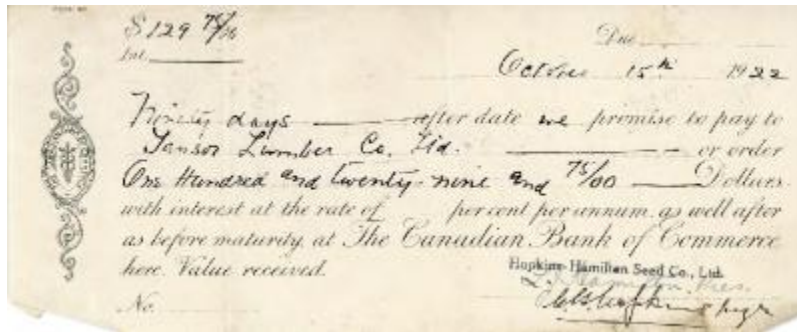 $129 75/00 Due
Int.
October 15th 1922
Ninety days after date we promise to pay to
Lumber Co. Ltd. or order
One Hundred and twenty-nine and 75/00 Dollars
with interest at the rate of per cent per annum, as well after
as before maturity, at The Canadian Bank of Commerce
here. Value received.
Hopkins-Hamilton Seed Co., Ltd.
Hamilton Pres.
No. Hopkins